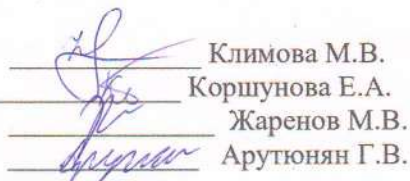 Климова М.В.
Коршунова Е.А.
Жаренов М.В.
Арутюнян Г.В.